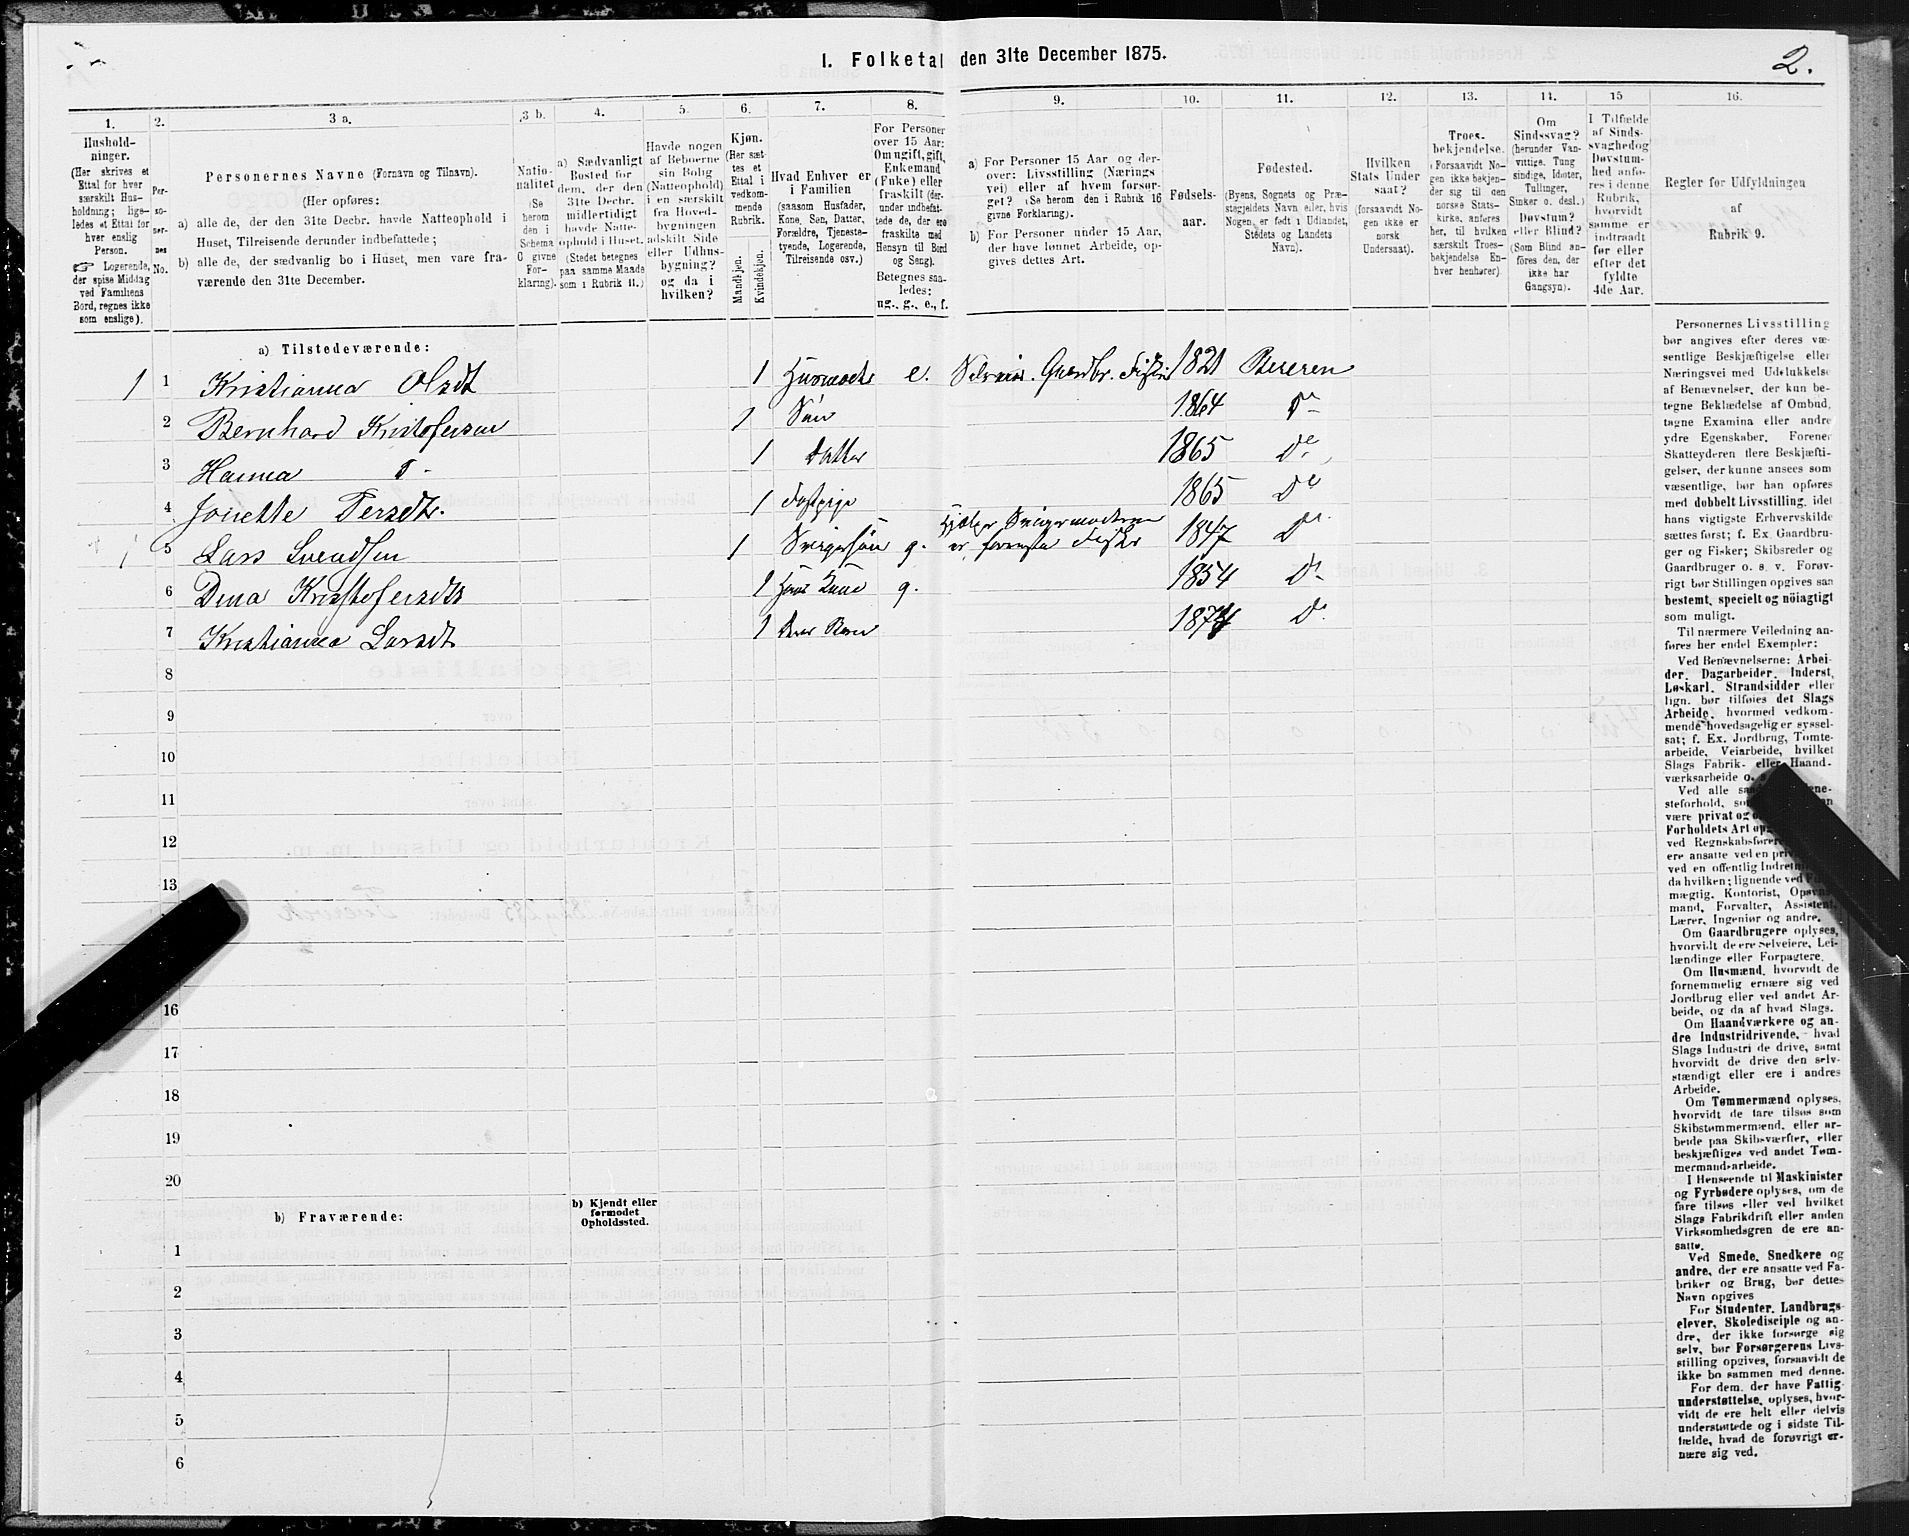 1. Folketal den 31te December 1875.
2.
1.
Hushold-
ninger.
(Her skrives et
Ettal for hver
særskilt Hus-
holdning; lige-
ledes et Ettal for
hver enslig
Person.
☞ Logerende,
der spise Middag
ved Familiens
Bord, regnes ikke
som enslige).
2.
Per-
so-
ner-
nes
No.
3 a.
Personernes Navne (Fornavn og Tilnavn).
(Her opføres:
a) alle de, der den 31te Decbr. havde Natteophold i
Huset, Tilreisende derunder indbefattede;
b) alle de, der sædvanlig bo i Huset, men vare fra-
værende den 31te December.
3 b.
Natio-
nalitet
(Se
herom
den i
Schema
C givne
For-
klaring).
4.
a) Sædvanligt
Bosted for
dem, der den
31te Decbr.
midlertidigt
havde Natte-
ophold i Huset.
(Stedet betegnes
paa samme Maade
som i Rubrik 11.)
5.
Havde nogen
af Beboerne
sin Bolig
(Natteophold)
i en særskilt
fra Hoved-
bygningen
adskilt Side
eller Udhus-
bygning?
og da i
hvilken?
6.
Kjøn.
(Her sæt-
tes et
Ettal i
vedkom-
mende
Rubrik.
Mandkjøn.
Kvindekjøn.
7.
Hvad Enhver er
i Familien
(saasom Husfader,
Kone, Søn, Datter,
Forældre, Tjeneste-
tyende, Logerende,
Tilreisende osv.)
8.
For Personer
over 15 Aar:
Om ugift, gift,
Enkemand
(Enke) eller
fraskilt (der-
under indbefat-
tede de, der ere
fraskilte med
Hensyn til Bord
og Seng).
Betegnes saa-
ledes:
ug., g., e., f.
9.
a) For Personer 15 Aar og der-
over: Livsstilling (Nærings
vei) eller af hvem forsør-
get? (Se herom den i Rubrik 16
givne Forklaring).
b) For Personer under 15 Aar,
der have lønnet Arbeide, op-
gives dettes Art.
10.
Fødsels-
aar.
11.
Fødested.
(Byens, Sognets og Præ-
stegjeldets Navn eller, hvis
Nogen er født i Udlandet,
Stedets og Landets
Navn).
12.
Hvilken
Stats Under
saat?
(forsaavidt No-
gen ikke er
norsk
Undersaat).
13.
Troes-
bekjendelse.
(Forsaavidt No-
gen ikke bekjen-
der sig til den
norske Stats-
kirke, anføres
her, til hvilken
særskilt Troes-
bekjendelse En-
hver henhører)
14.
Om
Sindssvag?
(herunder Van-
vittige, Tung
sindige, Idioter,
Tullinger,
Sinker o. desl.)
Døvstum?
eller Blind?
(Som Blind an-
føres den, der
ikke har
Gangsyn).
15
I Tilfælde
af Sinds-
svaghed og
Døvstum-
hed anfø-
res i denne
Rubrik,
hvorvidt
samme er
indtraadt
før eller
efter det
fyldte
4de Aar.
16.
Regler for Udfyldningen
af
Rubrik 9.
a) Tilstedeværende:
1 1 Kristianna Olsdt 1 Husmoder e. Selveier. Gaardbr. Fisker 1821 Bereren
2 Bernhard Kristofersen 1 Søn 1864 Do
3 Hanna D- 1 Datter 1865 Do
4 Jonette Persdtr. 1 Fostpige 1865 Do
1 5 Lars Svendsen 1 Svigersøn g. Hjælper Svigermoderen er fornemste Fisker 1847 Do
6 Dina Kristofersdtr 1 Hans Kone g. 1854 Do
7 Kristianna Larsdt 1 Deres Barn 1874 Do
8
9
10
11
12
13
16
17
18
19
20
b) Fraværende:
b) Kjendt eller
formodet
Opholdssted.
1
2
3
4
5
6
Personernes Livsstilling
bør angives efter deres væ-
sentlige Beskjæftigelse eller
Næringsvei med Udelukkelse
af Benævnelser, der kun be-
tegne Beklædelse af Ombud,
tagne Examina eller andre
ydre Egenskaber. Forener
Skatteyderen flere Beskjæfti-
gelser, der kunne ansees som
væsentlige, bør han opføres
med dobbelt Livsstilling, idet
hans vigtigste Erhvervskilde
sættes først; f. Ex. Gaardbru-
ger og Fisker; Skibsreder og
Gaardbruger o. s. v. Forøv-
rigt bør Stillingen opgives saa
bestemt, specielt og nöiagtigt
som muligt.
Til nærmere Veiledning an-
føres her endel Exempler:
Ved Benævnelserne: Arbei-
der, Dagarbeider, Inderst,
Løskarl, Strandsidder eller
lign. bør tilføies det Slags
Arbeide, hvormed vedkom-
mende hovedsagelig er syssel-
sat; f. Ex. Jordbrug, Tomte-
arbeide, Veiarbeide, hvilket
Slags Fabrik- eller Haand-
værksarbeide o. s
Ved alle
steforhold,
være privat og
Forholdets Art
ved Regnskabsfører
ere ansatte ved en
ved en offentlig
da hvilken; lignende ved
mægtig, Kontorist,
mand, Forvalter, Assistent,
Lærer, Ingeniør og andre.
Om Gaardbrugere oplyses,
hvorvidt de ere Selveiere, Lei-
lændinge eller Forpagtere.
Om Husmænd, hvorvidt de
fornemmelig ernære sig ved
Jordbrug eller ved andet Ar-
beide, og da af hvad Slags.
Om Haandværkere og an-
dre Industridrivende, hvad
Slags Industri de drive, samt
hvorvidt de drive den selv-
stændigt eller ere i andres
Arbeide.
Om Tømmermænd oplyses,
hvorvidt de fare tilsøs som
Skibstømmermænd, eller ar-
beide paa Skibsværfter, eller
beskjæftiges ved andet Tøm-
mermandsarbeide.
I Henseende til Maskinister
og Fyrbødere oplyses, om de
fare tilsøs eller ved hvilket
Slags Fabrikdrift eller anden
Virksomhedsgren de ere an-
satte.
Ved Smede, Snedkere og
andre, der ere ansatte ved Fa-
briker og Brug, bør dettes
Navn opgives
For Studenter, Landbrugs-
elever, Skoledisciple og an-
dre, der ikke forsørge sig
selv, bør Forsørgerens Livs-
stilling opgives, forsaavidt de
ikke bo sammen med denne.
For dem, der have Fattig-
understøttelse, oplyses, hvor-
vidt de ere helt eller delvis
understøttede og i sidste Til-
fælde, hvad de forøvrigt er-
nære sig ved.